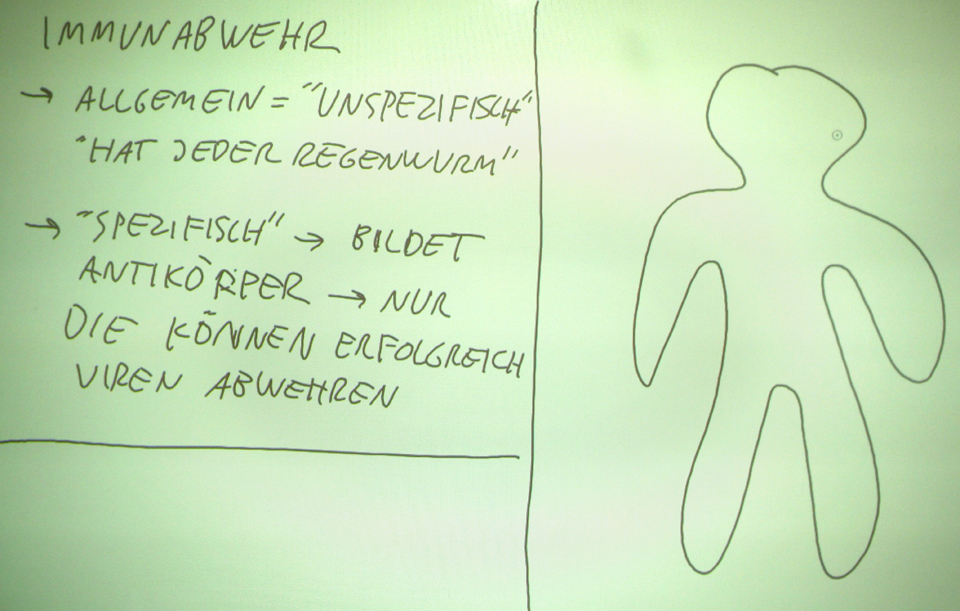 IMMUNABWEHR
→ ALLGEMEIN = "UNSPEZIFISCH"
"HAT JEDER REGENWURM"
→ "SPEZIFISCH" → BILDET
ANTIKÖRPER → NUR
DIE KÖNNEN ERFOLGREICH
VIREN ABWEHREN